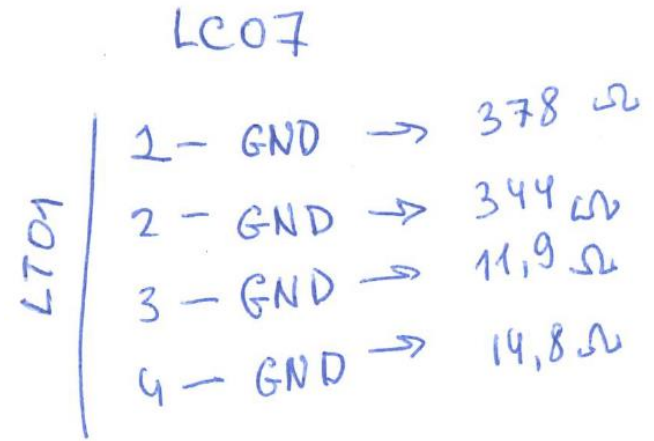 LC07
LT01
1 - GND → 378 Ω
2 - GND → 344 Ω
3 - GND → 11,9 Ω
4 - GND → 14,8 Ω